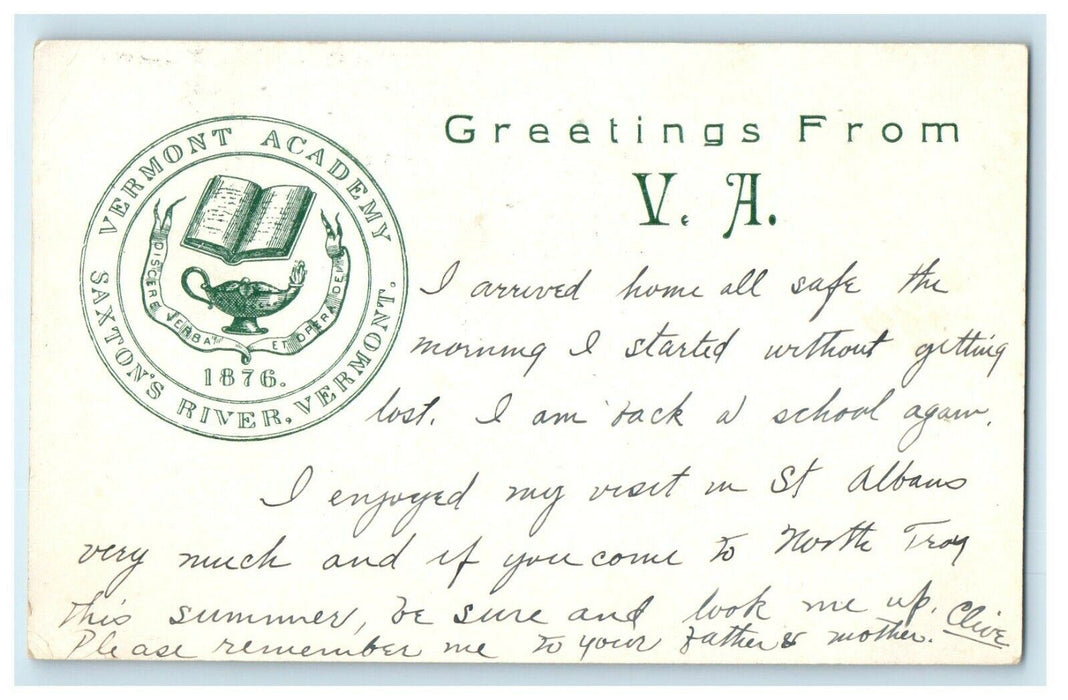 VERMONT ACADEMY
SAXTON'S RIVER, VERMONT.
DISCERE VERBA ET OPERA DEI
1876.
Greetings From
V. A.
I arrived home all safe the
morning I started without getting
lost. I am back a school again.
I enjoyed my visit in St Albans
very much and if you come to North Troy
this summer, be sure and look me up. Clive
Please remember me to your father & mother.